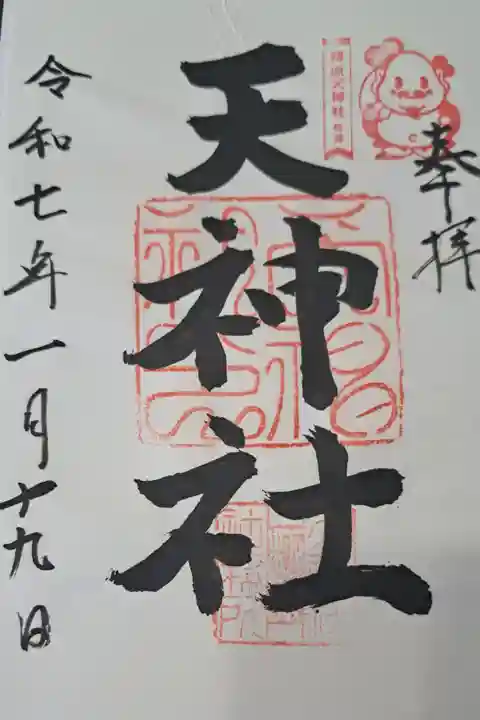 奉拝
天神社
令和七年一月十九日